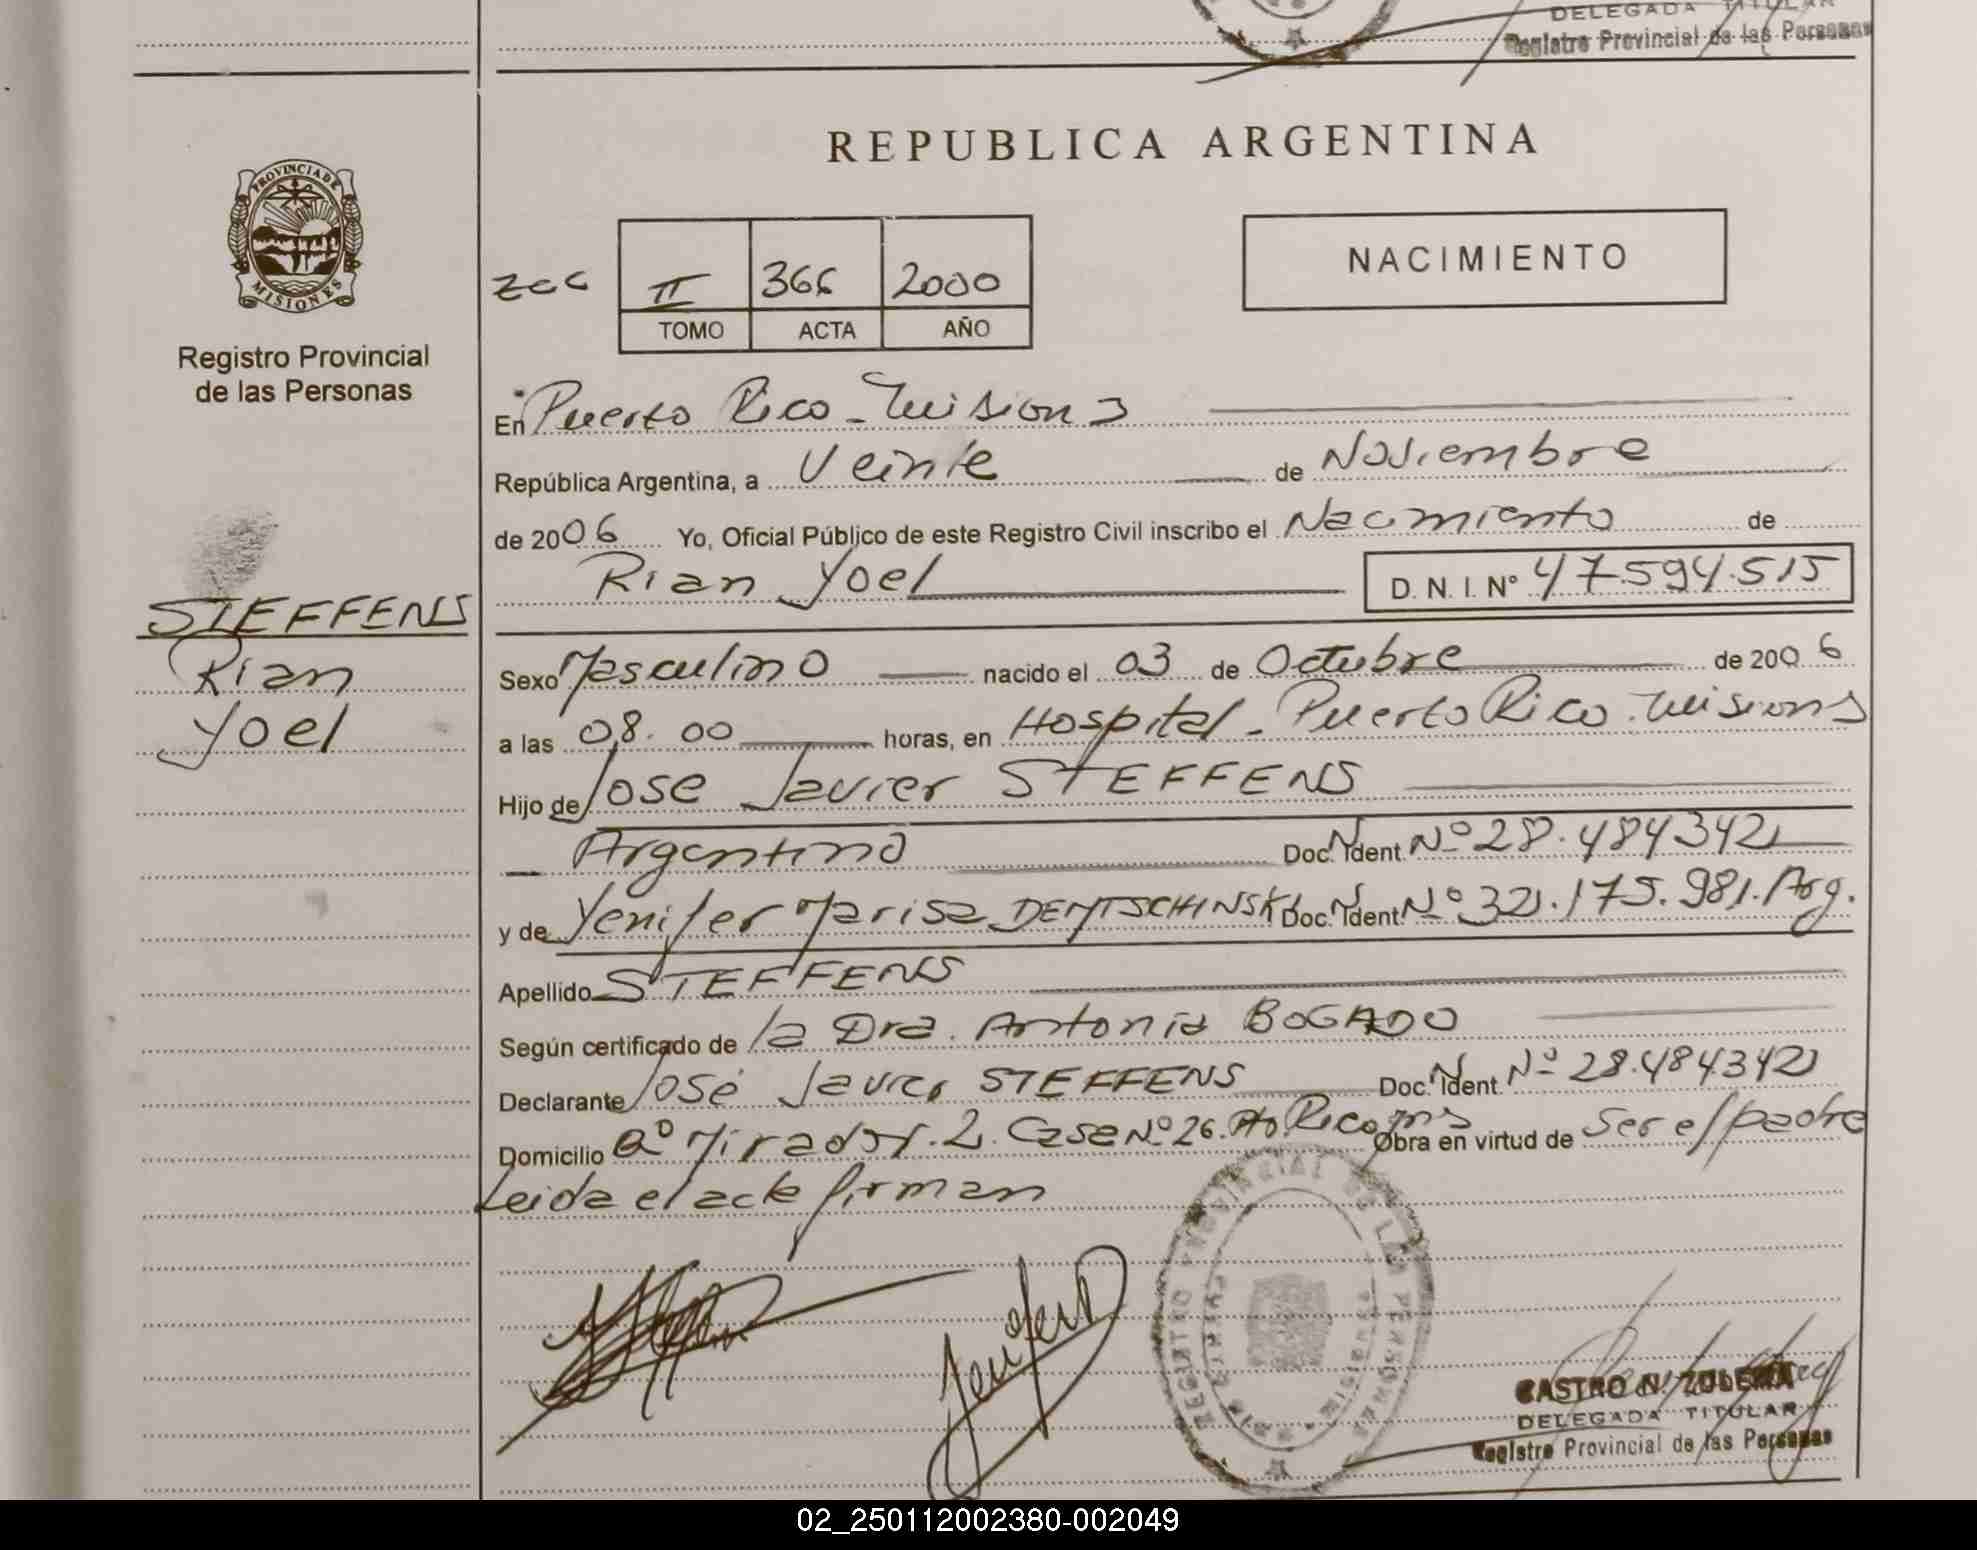 DELEGADA TITULAR
Registro Provincial de las Personas
REPUBLICA ARGENTINA
PROVINCIA DE
MISIONES
Registro Provincial
de las Personas
II 366 2000
TOMO ACTA AÑO
NACIMIENTO
En Puerto Rico - Misiones
República Argentina, a Veinte de Noviembre
de 2006 Yo, Oficial Público de este Registro Civil inscribo el Nacimiento de
Rian Yoel D. N. I. N° 47.594.515
STEFFENS
Rian
Yoel
Sexo Masculino nacido el 03 de Octubre de 2006
a las 08.00 horas, en Hospital - Puerto Rico. Misiones
Hijo de Jose Javier STEFFENS
Argentino Doc. Ident. Nº 28.484342
y de Yenifer Marisa Doc. Ident. Nº 32.175.981. Arg.
Apellido STEFFENS
Según certificado de la Dra. Antonia BOGADO
Declarante José Javier STEFFENS Doc. Ident. Nº 28.484342
Domicilio Bº Mirador. 2. Casa Nº 26. Pto Rico Mns Obra en virtud de ser el padre
Leida el acta firman
REGISTRO PROVINCIAL DE LAS PERSONAS
CASTRO N. ZULEMA
DELEGADA TITULAR
Registro Provincial de las Personas
02_250112002380-002049